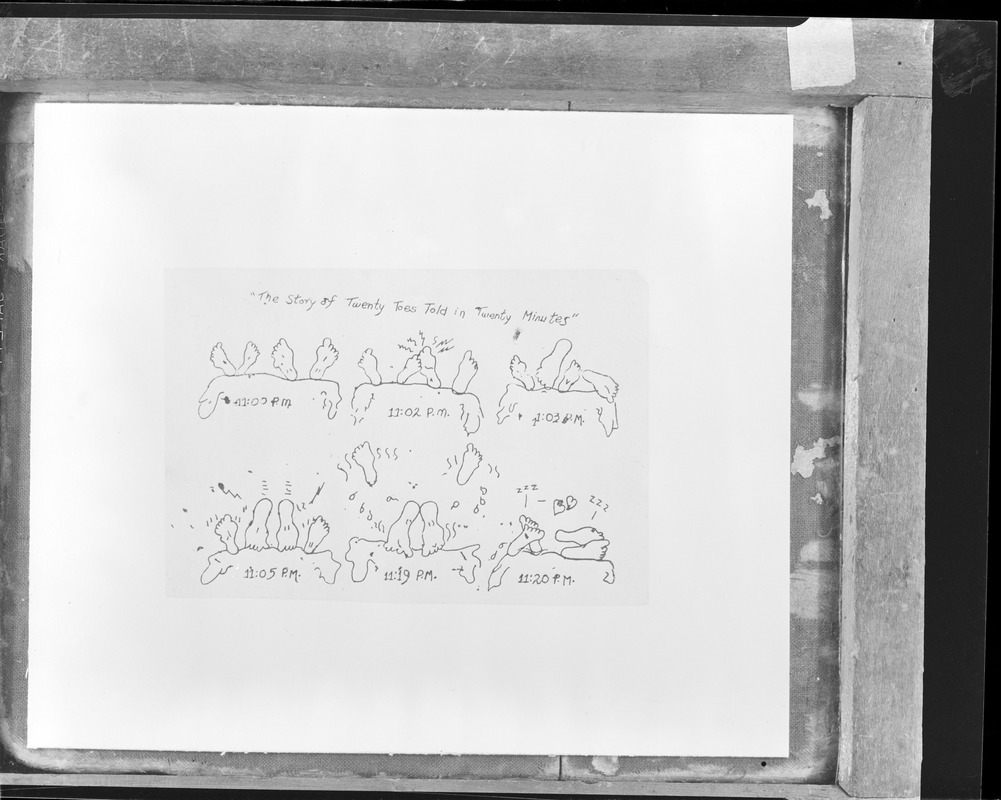 "The Story of Twenty Toes Told in Twenty Minutes"
11:00 P.M
11:02 P.M.
11:03 P.M.
zzz
zzz
11:05 P.M.
11:19 P.M.
11:20 P.M.